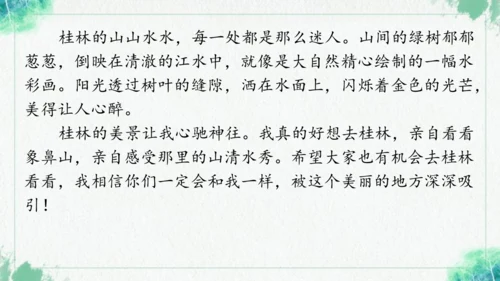 桂林的山山水水，每一处都是那么迷人。山间的绿树郁郁
葱葱，倒映在清澈的江水中，就像是大自然精心绘制的一幅水
彩画。阳光透过树叶的缝隙，洒在水面上，闪烁着金色的光芒，
美得让人心醉。
桂林的美景让我心驰神往。我真的好想去桂林，亲自看看
象鼻山，亲自感受那里的山清水秀。希望大家也有机会去桂林
看看，我相信你们一定会和我一样，被这个美丽的地方深深吸
引！